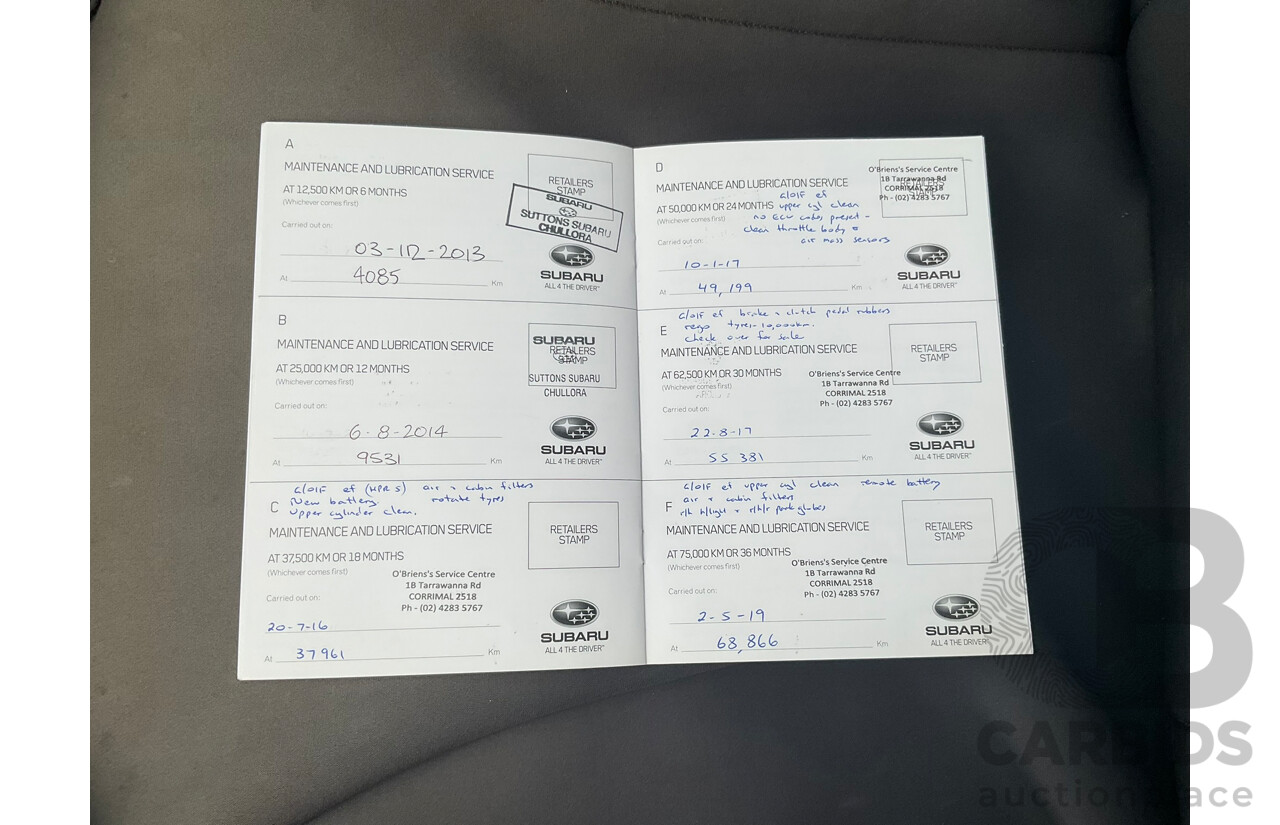 A
MAINTENANCE AND LUBRICATION SERVICE
AT 12,500 KM OR 6 MONTHS
(Whichever comes first)
RETAILERS
STAMP
SUBARU
SUTTONS SUBARU
CHULLORA
Carried out on:
03-12-2013
At 4085 Km
SUBARU
ALL 4 THE DRIVER
B
MAINTENANCE AND LUBRICATION SERVICE
AT 25,000 KM OR 12 MONTHS
(Whichever comes first)
SUBARU
RETAILERS
STAMP
SUTTONS SUBARU
CHULLORA
Carried out on:
6-8-2014
At 9531 Km
SUBARU
ALL 4 THE DRIVER
c/o/F ef (HPR 5) air + cabin filters
New battery rotate tyres
upper cylinder clean.
C
MAINTENANCE AND LUBRICATION SERVICE
AT 37,500 KM OR 18 MONTHS
(Whichever comes first)
RETAILERS
STAMP
O'Briens's Service Centre
1B Tarrawanna Rd
CORRIMAL 2518
Ph - (02) 4283 5767
Carried out on:
20-7-16
At 37961 Km
SUBARU
ALL 4 THE DRIVER
D
MAINTENANCE AND LUBRICATION SERVICE
AT 50,000 KM OR 24 MONTHS
(Whichever comes first)
RETAILERS
STAMP
O'Briens's Service Centre
1B Tarrawanna Rd
CORRIMAL 2518
Ph - (02) 4283 5767
c/o/F ef
upper cyl clean
no ECU codes present -
clean throttle body +
air mass sensors
Carried out on:
10-1-17
At 49,199 Km
SUBARU
ALL 4 THE DRIVER
c/o/F ef brake + clutch pedal rubbers
rego tyres-10,000km.
check over for sale
E
MAINTENANCE AND LUBRICATION SERVICE
AT 62,500 KM OR 30 MONTHS
(Whichever comes first)
RETAILERS
STAMP
O'Briens's Service Centre
1B Tarrawanna Rd
CORRIMAL 2518
Ph - (02) 4283 5767
Carried out on:
22-8-17
At 55 381 Km
SUBARU
ALL 4 THE DRIVER
c/o/F ef upper cyl clean remote battery
air + cabin filters
r/h h/light + r/h/r park globes
F
MAINTENANCE AND LUBRICATION SERVICE
AT 75,000 KM OR 36 MONTHS
(Whichever comes first)
RETAILERS
STAMP
O'Briens's Service Centre
1B Tarrawanna Rd
CORRIMAL 2518
Ph - (02) 4283 5767
Carried out on:
2-5-19
At 68,866 Km
SUBARU
ALL 4 THE DRIVER